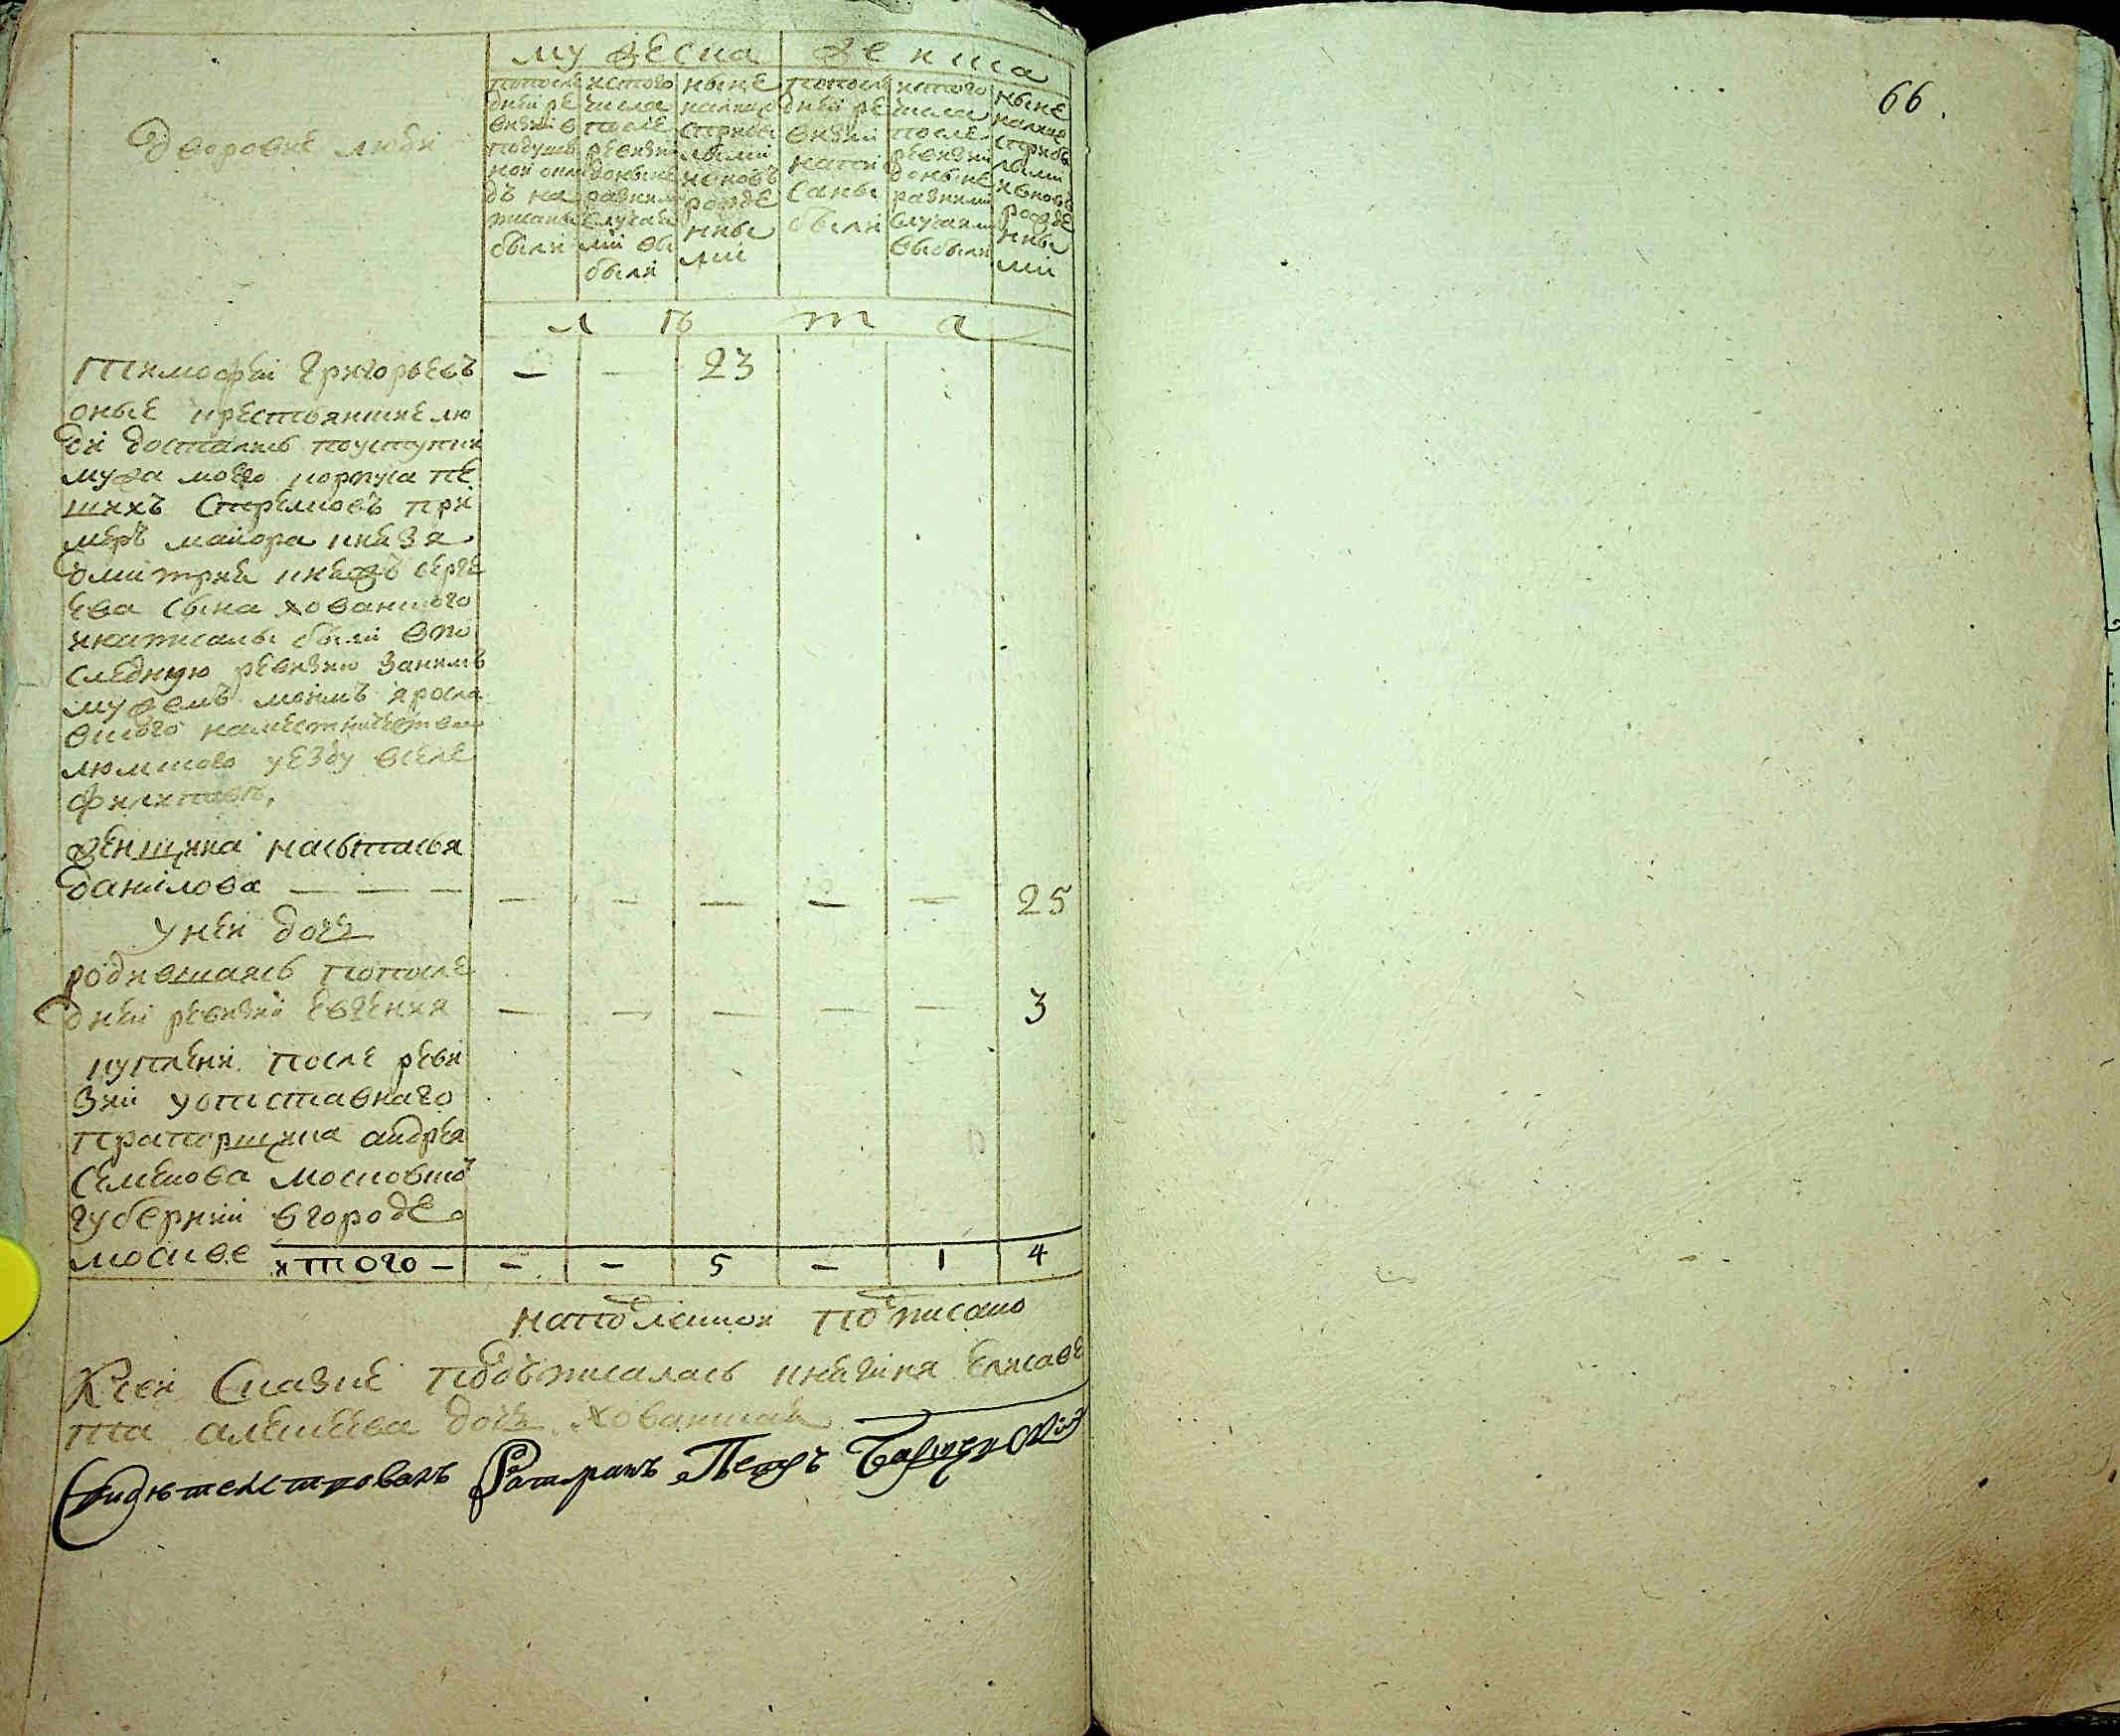 66.
мужеска женска
дворовые люди
попосле дней ре визии в подушн ной окла дъ на писаны были
истого числа после ревизии доныне разными случая ми вы были
ныне налицо сприбы лыми ивновъ рожде нны ми
попосле дней ре визии напи саны были
истого числа после ревизии доныне разными случаями выбыли
ныне налицо сприбы лыми ивновъ рожде нны ми
лѣта
тимофеи григорьевъ — — 23
оные крестьянские лю
ди достались поуступки
мужа моего корпуса пе
шихъ стрелковъ при
меръ маиора князя
дмитрия княжъ серге
ева сына хованского
инаписаны были впо
следнюю ревизию занимъ
мужемъ моимъ яросла
вского наместничества
любимского уезду вселе
филипавѣ.
женщина настасья
данилова — — — — — — — — 25
унеи дочь
родившаясь попосле
днеи ревизии евгения — — — — — 3
куплени после реви
зии уотставнаго
прапорщика андрея
семенова московской
губернии вгороде
москве итого — — — 5 — 1 4
наподленной подписано
Ксеи сказке подъписалась княгиня елисаве
та алексеева дочь хованская
Свидетелствовалъ Ратманъ Петръ